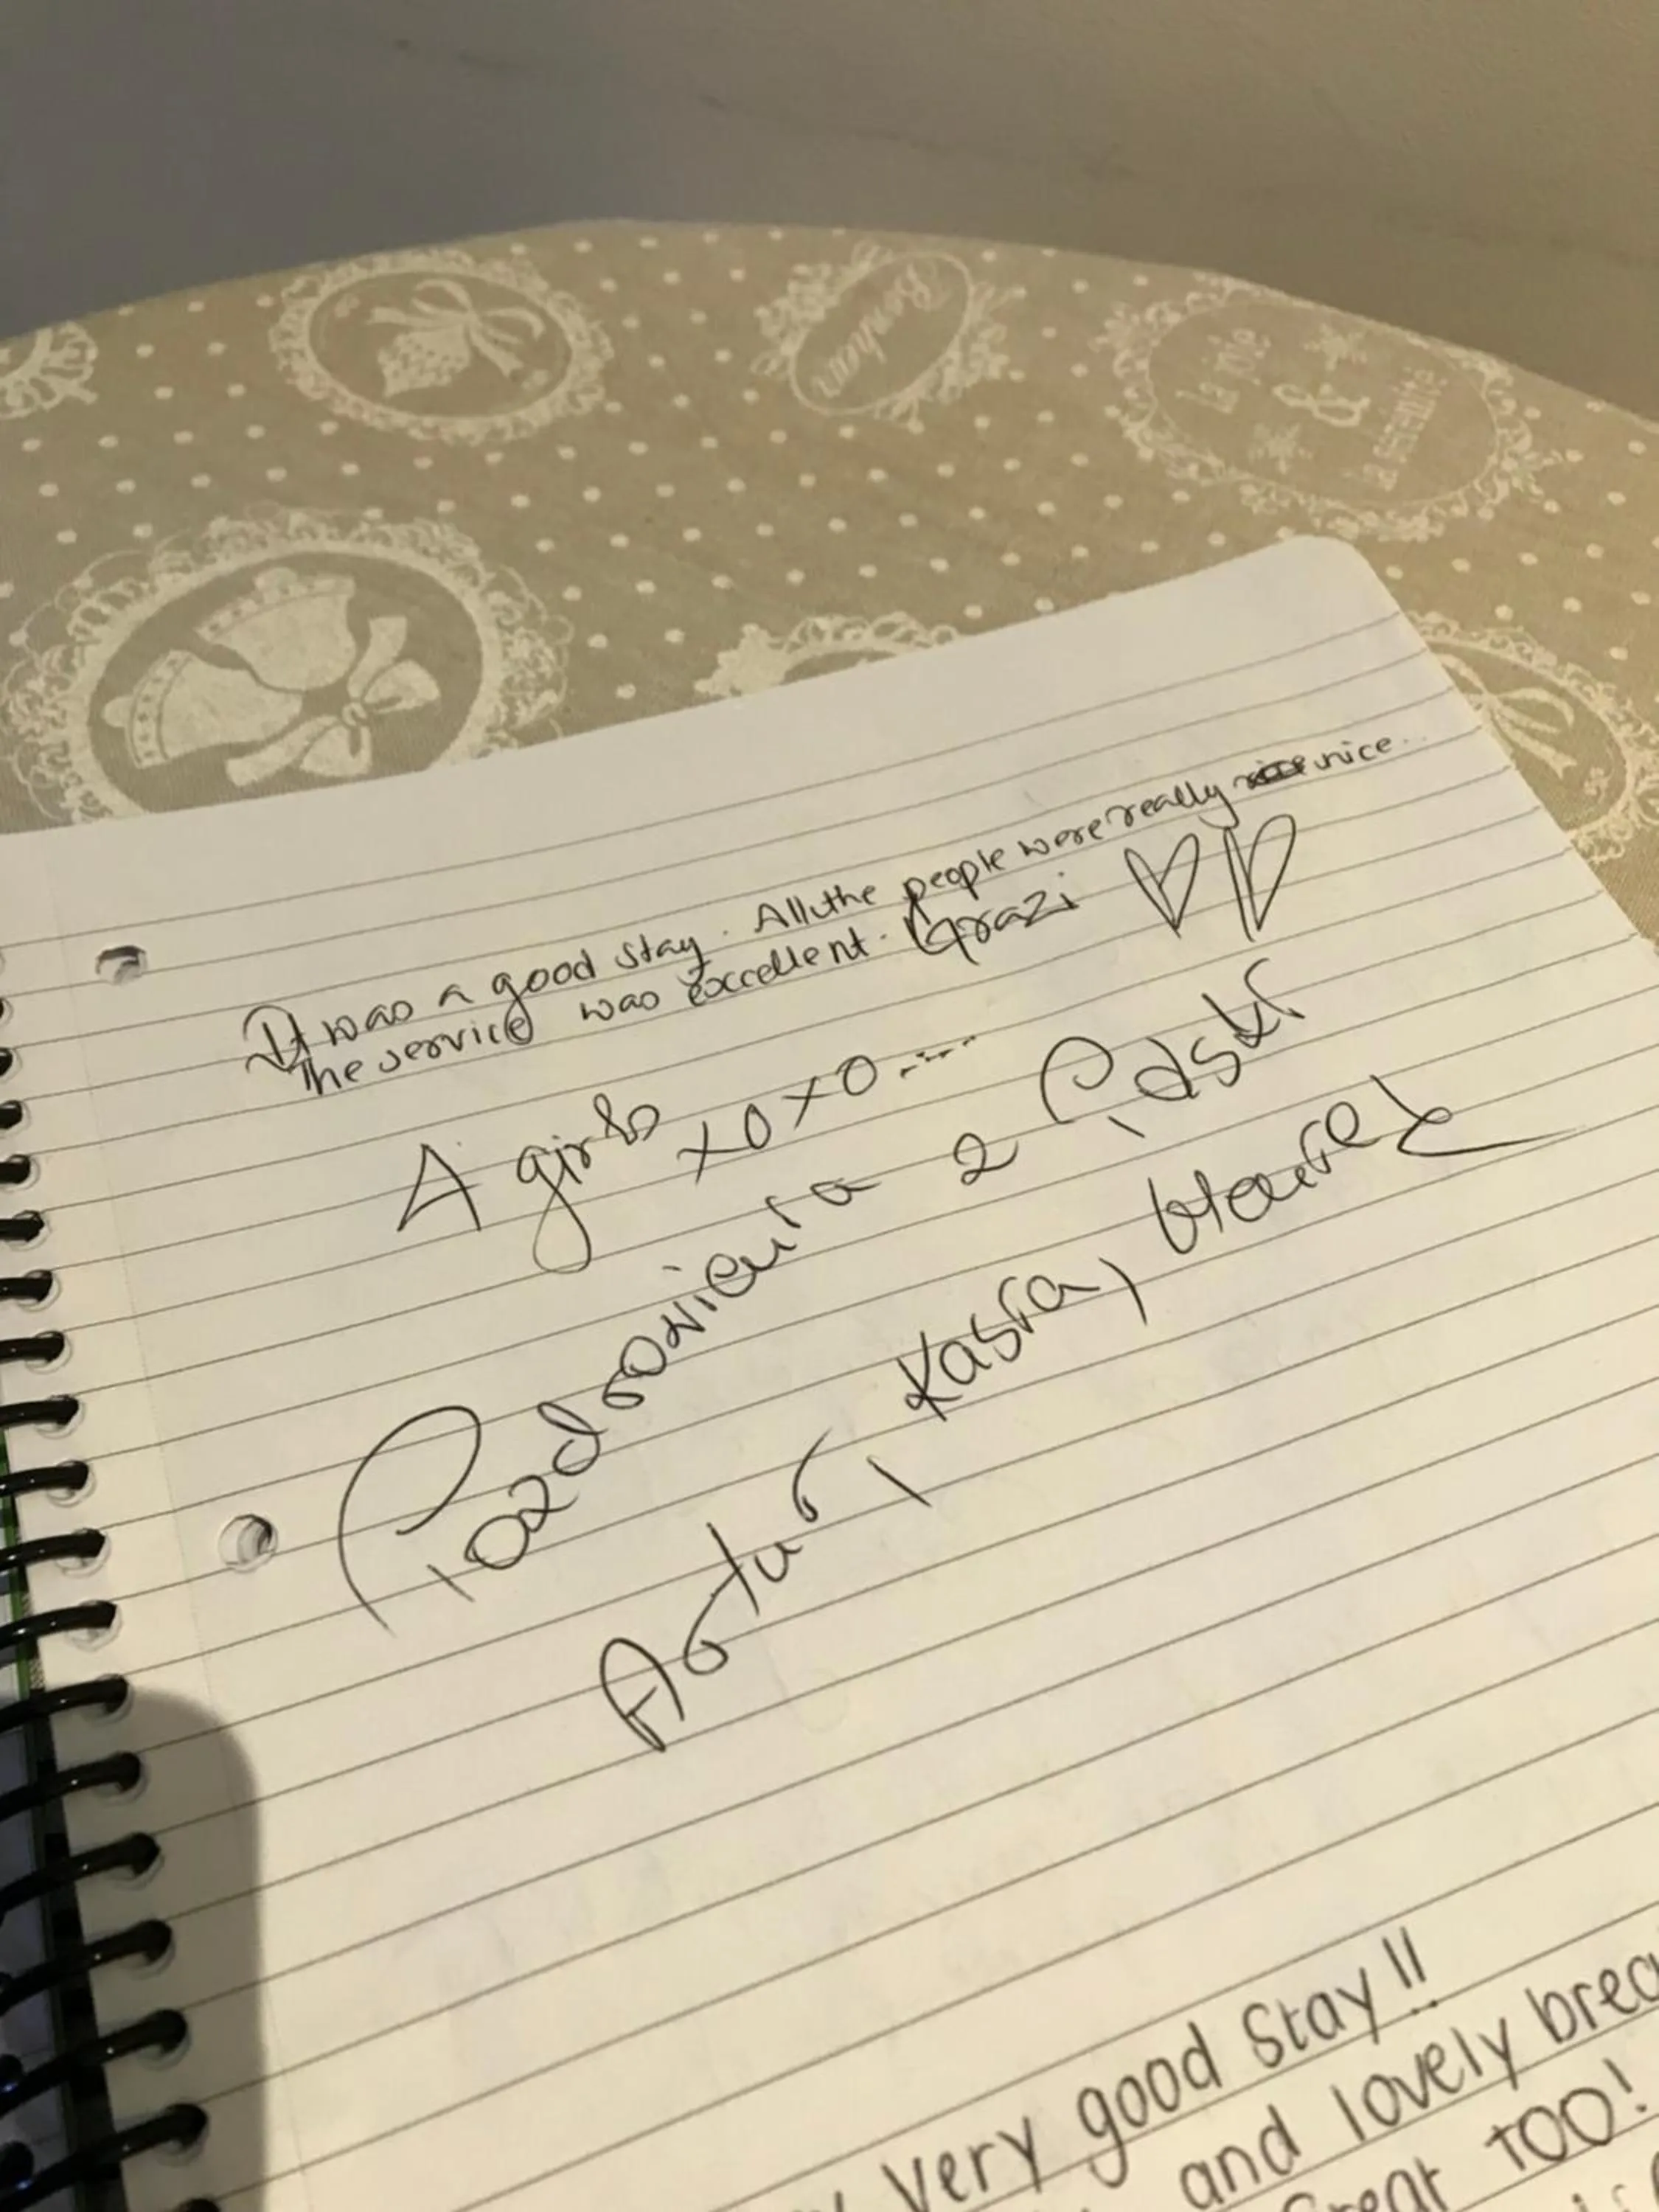 Bonheur
La joie
&
la sérénité
It was a good stay. All the people were really nice nice...
The service was excellent. Grazi
4 girls xoxo----
Pozdrowienia z Polski
Artur, Kasia,
very good stay!!
and lovely brea
great too!